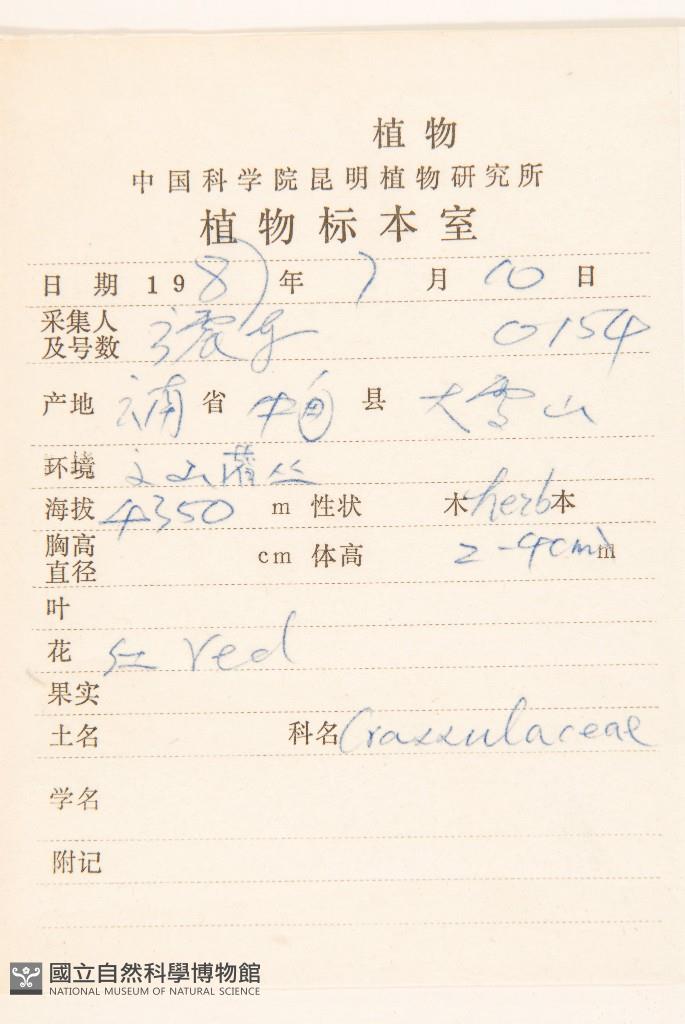 植物
中国科学院昆明植物研究所
植物标本室
日期 1987年 7月 10日
采集人
及号数 0154
产地 云南省 中甸县 大雪山
环境 灌丛
海拔 4350 m 性状 木 herb 本
胸高
直径 cm 体高 2-4cm m
叶
花 红 red
果实
土名 科名 Crassulaceae
学名
附记
國立自然科學博物館
NATIONAL MUSEUM OF NATURAL SCIENCE